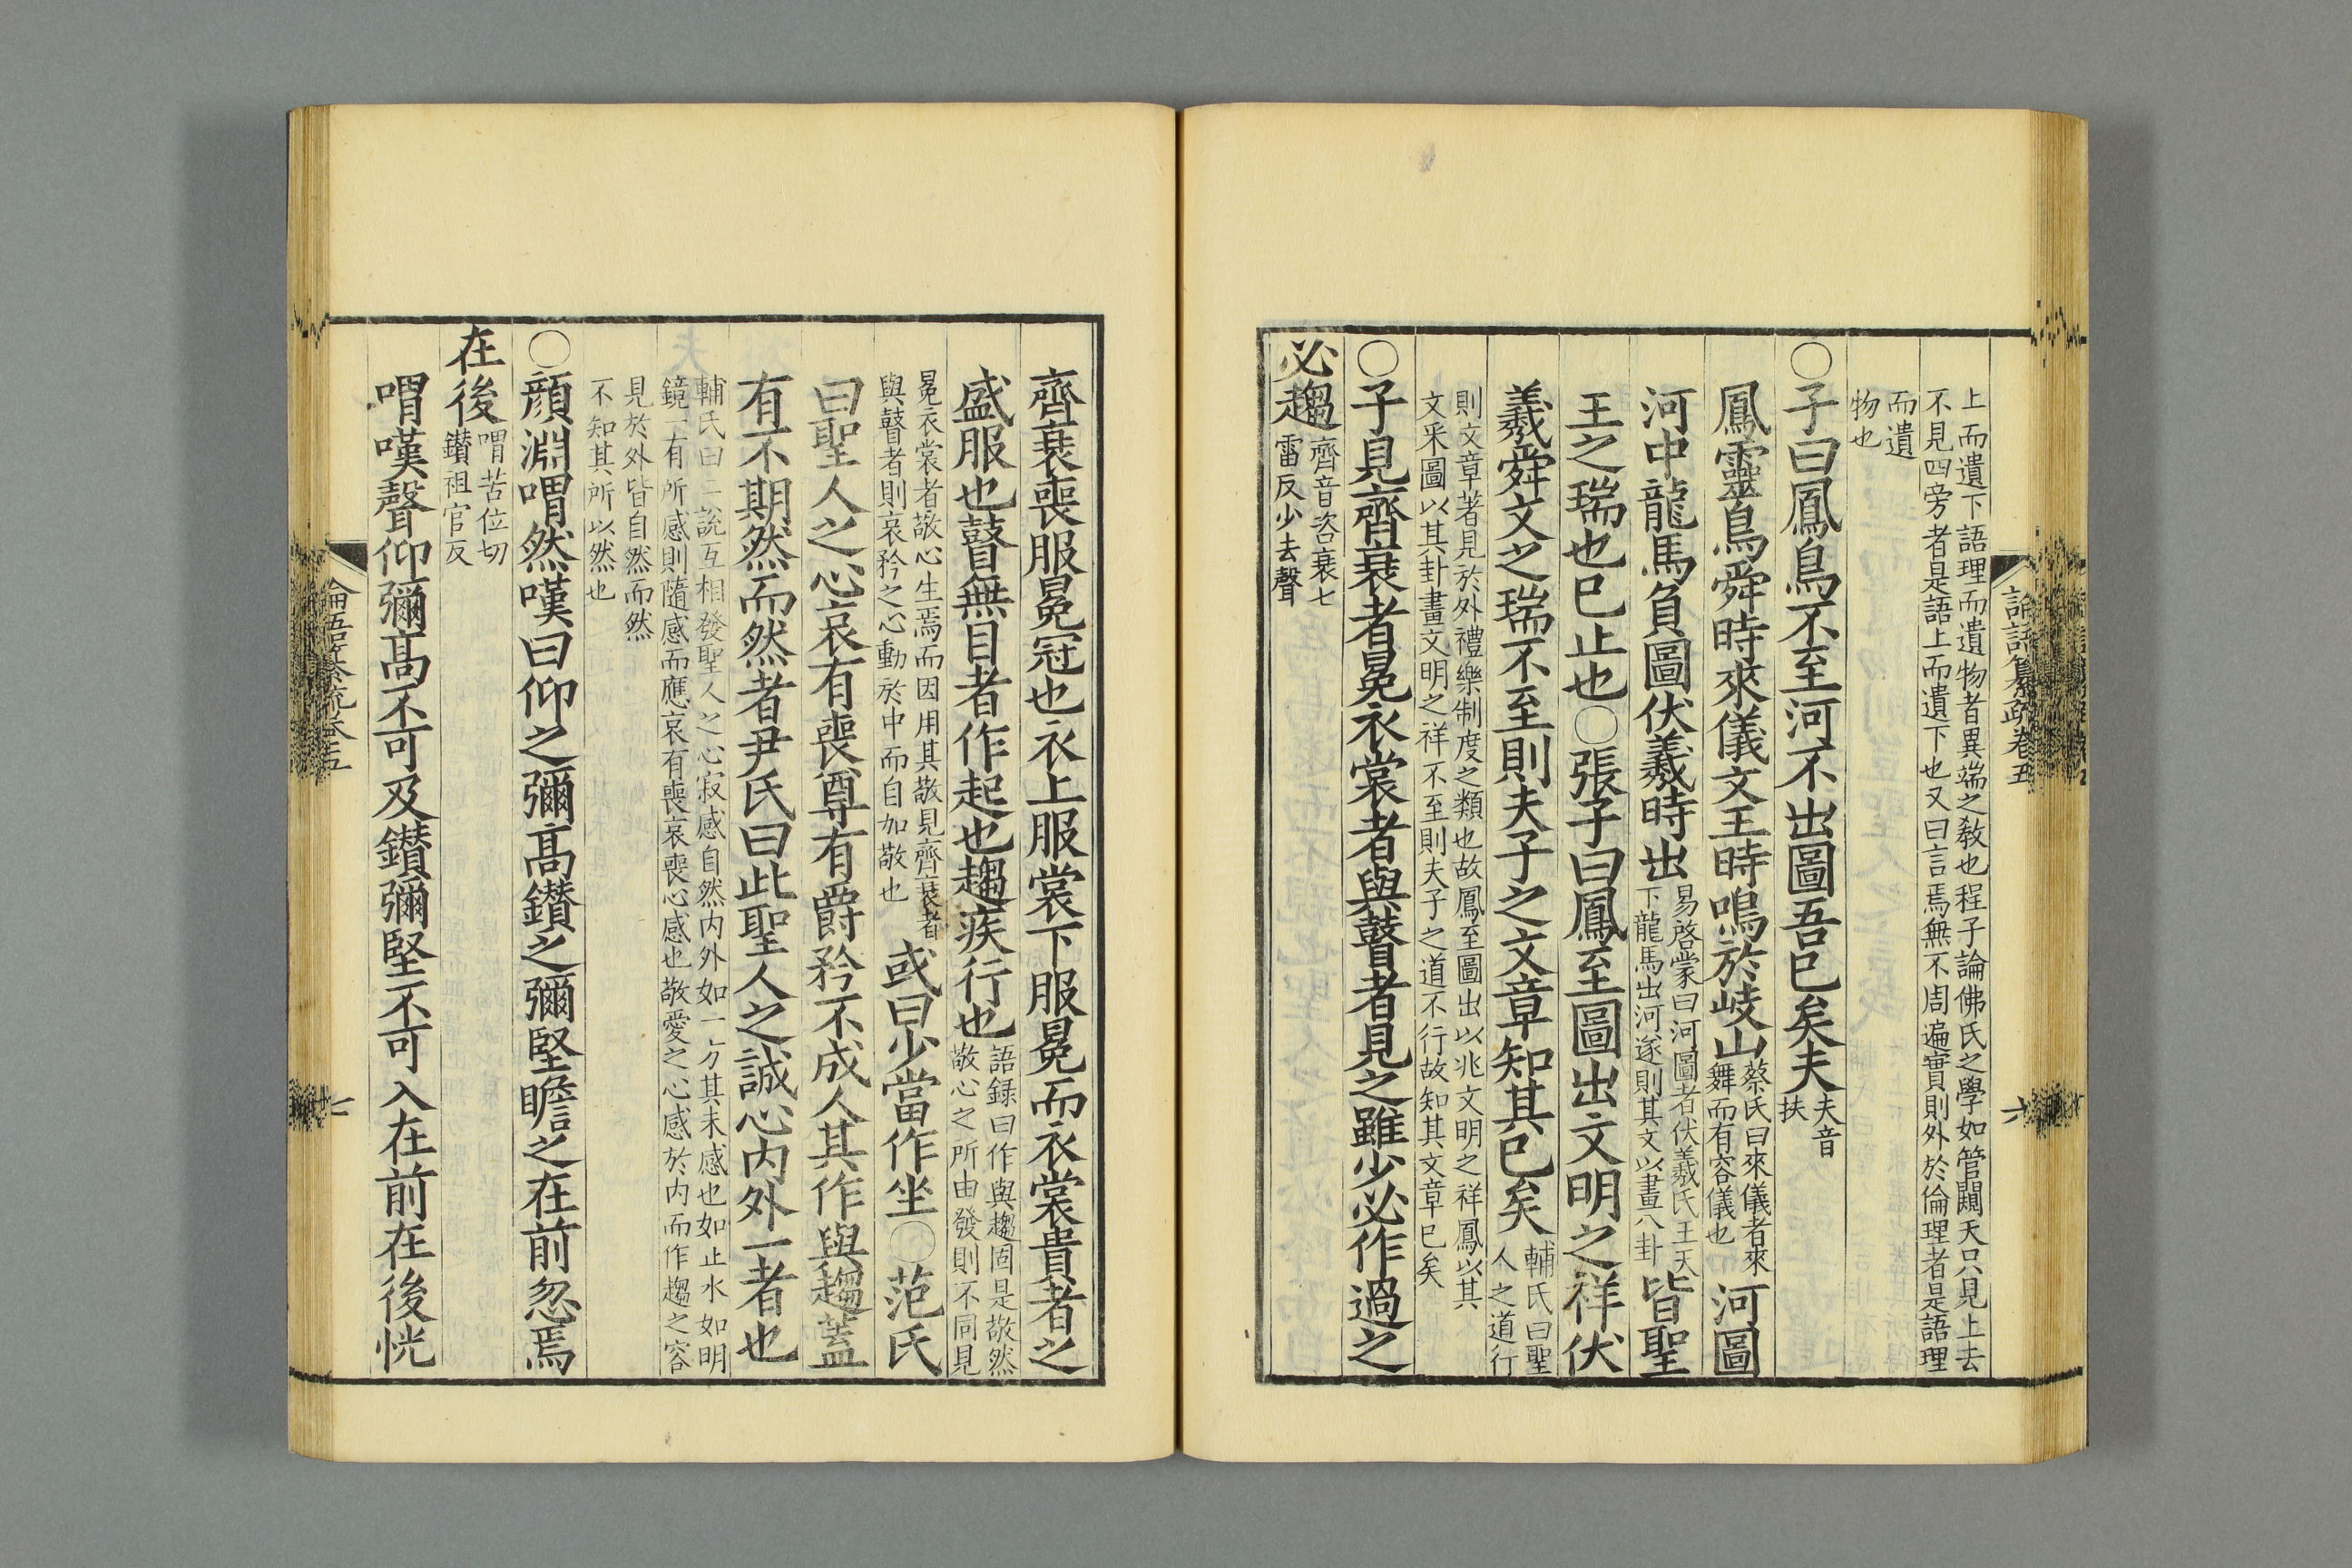 論語纂疏卷五
六
上而遺下語理而遺物者異端之敎也程子論佛氏之學如管闚天只見上去
不見四旁者是語上而遺下也又曰言焉無不周遍實則外於倫理者是語理
而遺
物也
〇子曰鳳鳥不至河不出圖吾已矣夫夫音
扶
鳳靈鳥舜時來儀文王時鳴於岐山蔡氏曰來儀者來
舞而有容儀也河圖
河中龍馬負圖伏羲時出易啓蒙曰河圖者伏羲氏王天
下龍馬出河遂則其文以畫八卦皆聖
王之瑞也已止也〇張子曰鳳至圖出文明之祥伏
羲舜文之瑞不至則夫子之文章知其已矣輔氏曰聖
人之道行
則文章著見於外禮樂制度之類也故鳳至圖出以兆文明之祥鳳以其
文采圖以其卦畫文明之祥不至則夫子之道不行故知其文章已矣
〇子見齊衰者冕衣裳者與瞽者見之雖少必作過之
必趨齊音咨衰七
雷反少去聲
齊衰喪服冕冠也衣上服裳下服冕而衣裳貴者之
盛服也瞽無目者作起也趨疾行也語録曰作與趨固是敬然
敬心之所由發則不同見
冕衣裳者敬心生焉而因用其敬見齊衰者
與瞽者則哀矜之心動於中而自加敬也或曰少當作坐〇范氏
曰聖人之心哀有喪尊有爵矜不成人其作與趨蓋
有不期然而然者尹氏曰此聖人之誠心内外一者也
輔氏曰二說互相發聖人之心寂感自然内外如一方其未感也如止水如明
鏡一有所感則隨感而應哀有喪哀喪心感也敬愛之心感於内而作趨之容
見於外皆自然而然
不知其所以然也
〇顔淵喟然嘆曰仰之彌髙鑚之彌堅瞻之在前忽焉
在後喟苦位切
鑚祖官反
喟嘆聲仰彌髙不可及鑚彌堅不可入在前在後恍
論語纂疏卷五
七